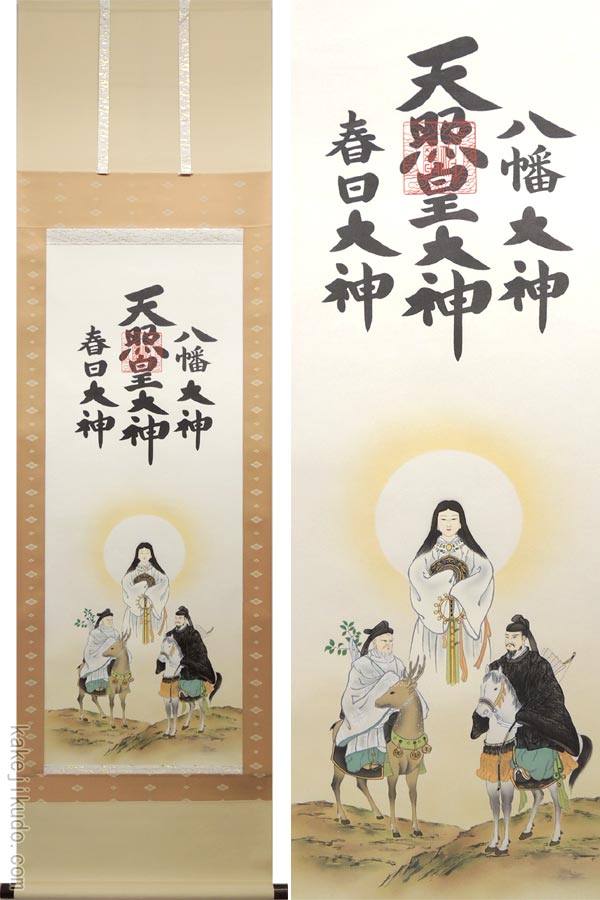 八幡大神
天照皇大神
春日大神
八幡大神
天照皇大神
春日大神
kakejikudo.com